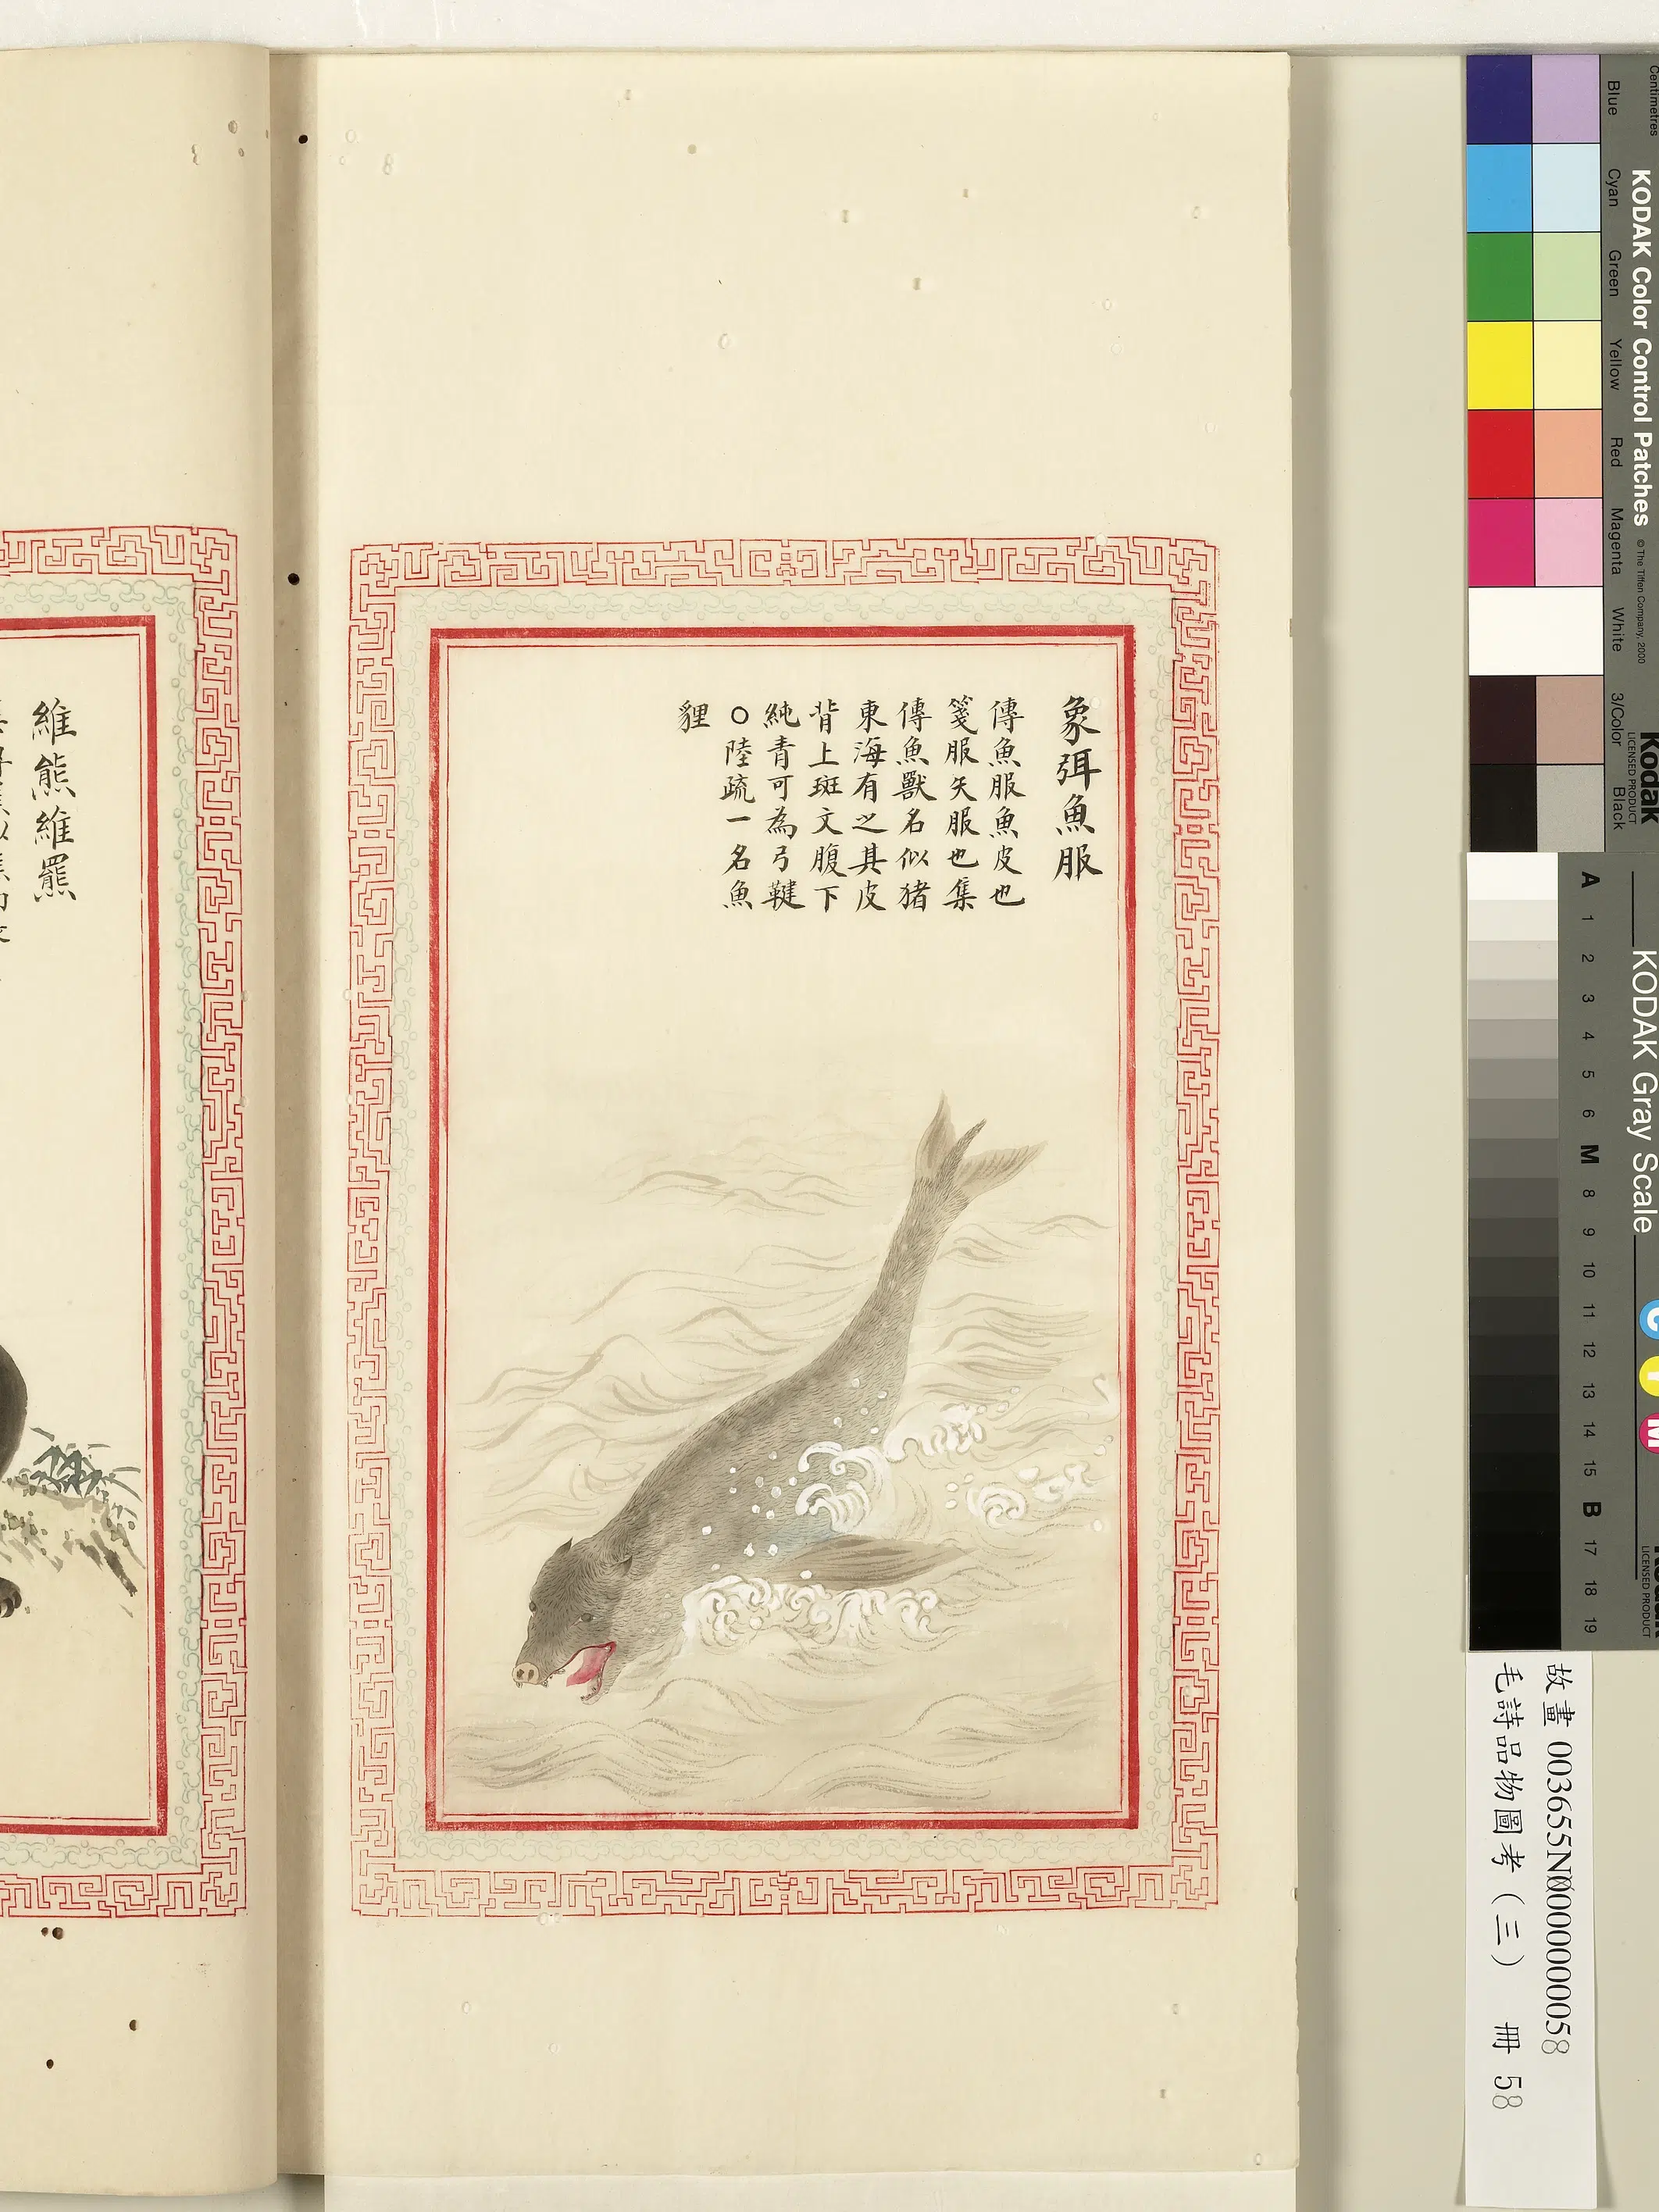 象弭魚服
傳魚服魚皮也
箋服矢服也集
傳魚獸名似猪
東海有之其皮
背上斑文腹下
純青可為弓鞬
○陸疏一名魚
貍
維熊維羆
KODAK Color Control Patches
© The Tiffen Company, 2000
Kodak
LICENSED PRODUCT
Centimetres
Blue
Cyan
Green
Yellow
Red
Magenta
White
3/Color
Black
KODAK Gray Scale
C
Y
M
LICENSED PRODUCT
A 1 2 3 4 5 6 M 8 9 10 11 12 13 14 15 B 17 18 19
故畫 003655N000000058
毛詩品物圖考（三） 冊 58